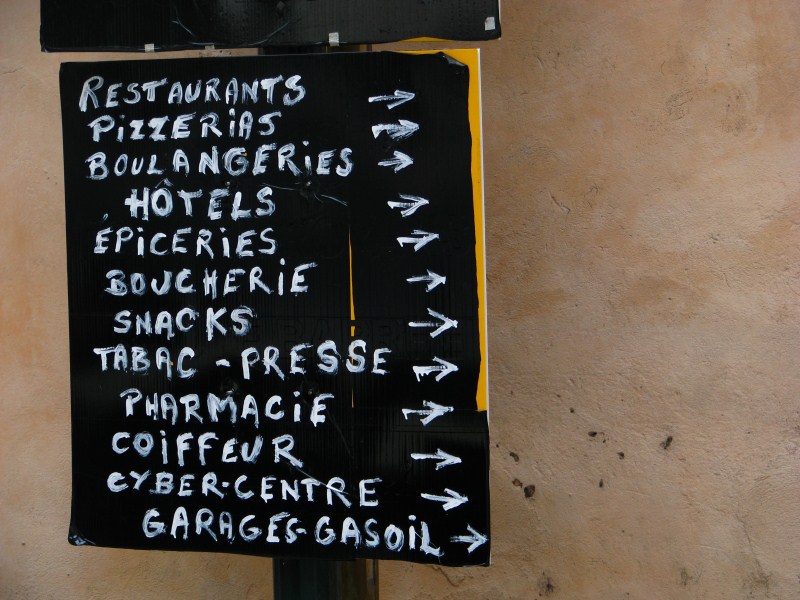 RESTAURANTS →
PIZZERIAS →
BOULANGERIES →
HÔTELS →
ÉPICERIES →
BOUCHERIE →
SNACKS →
TABAC - PRESSE →
PHARMACIE →
COIFFEUR →
CYBER-CENTRE →
GARAGES-GASOIL →